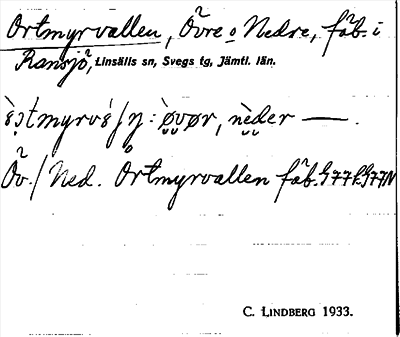 Ortmyrvallen, Övre o Nedre, fäb. i
Ransjö, Linsälls sn, Svegs tg, Jämtl. län.
: øvør, nèder —.
Öv./Ned. Ortmyrvallen fäb.
C. LINDBERG 1933.